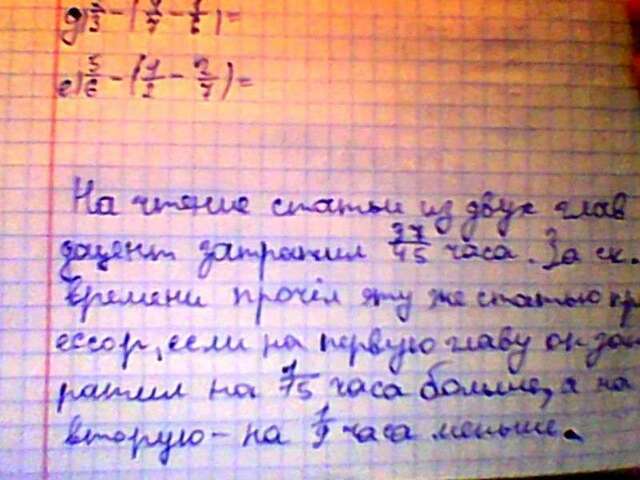 е) 5/6 - (1/2 - 2/7) =
На чтение статьи из двух глав
доцент затратил 37/45 часа. За ск.
времени прочёл эту же статью пр
ессор, если на первую главу он зат
ратил на часа больше, а на
вторую - на часа меньше.